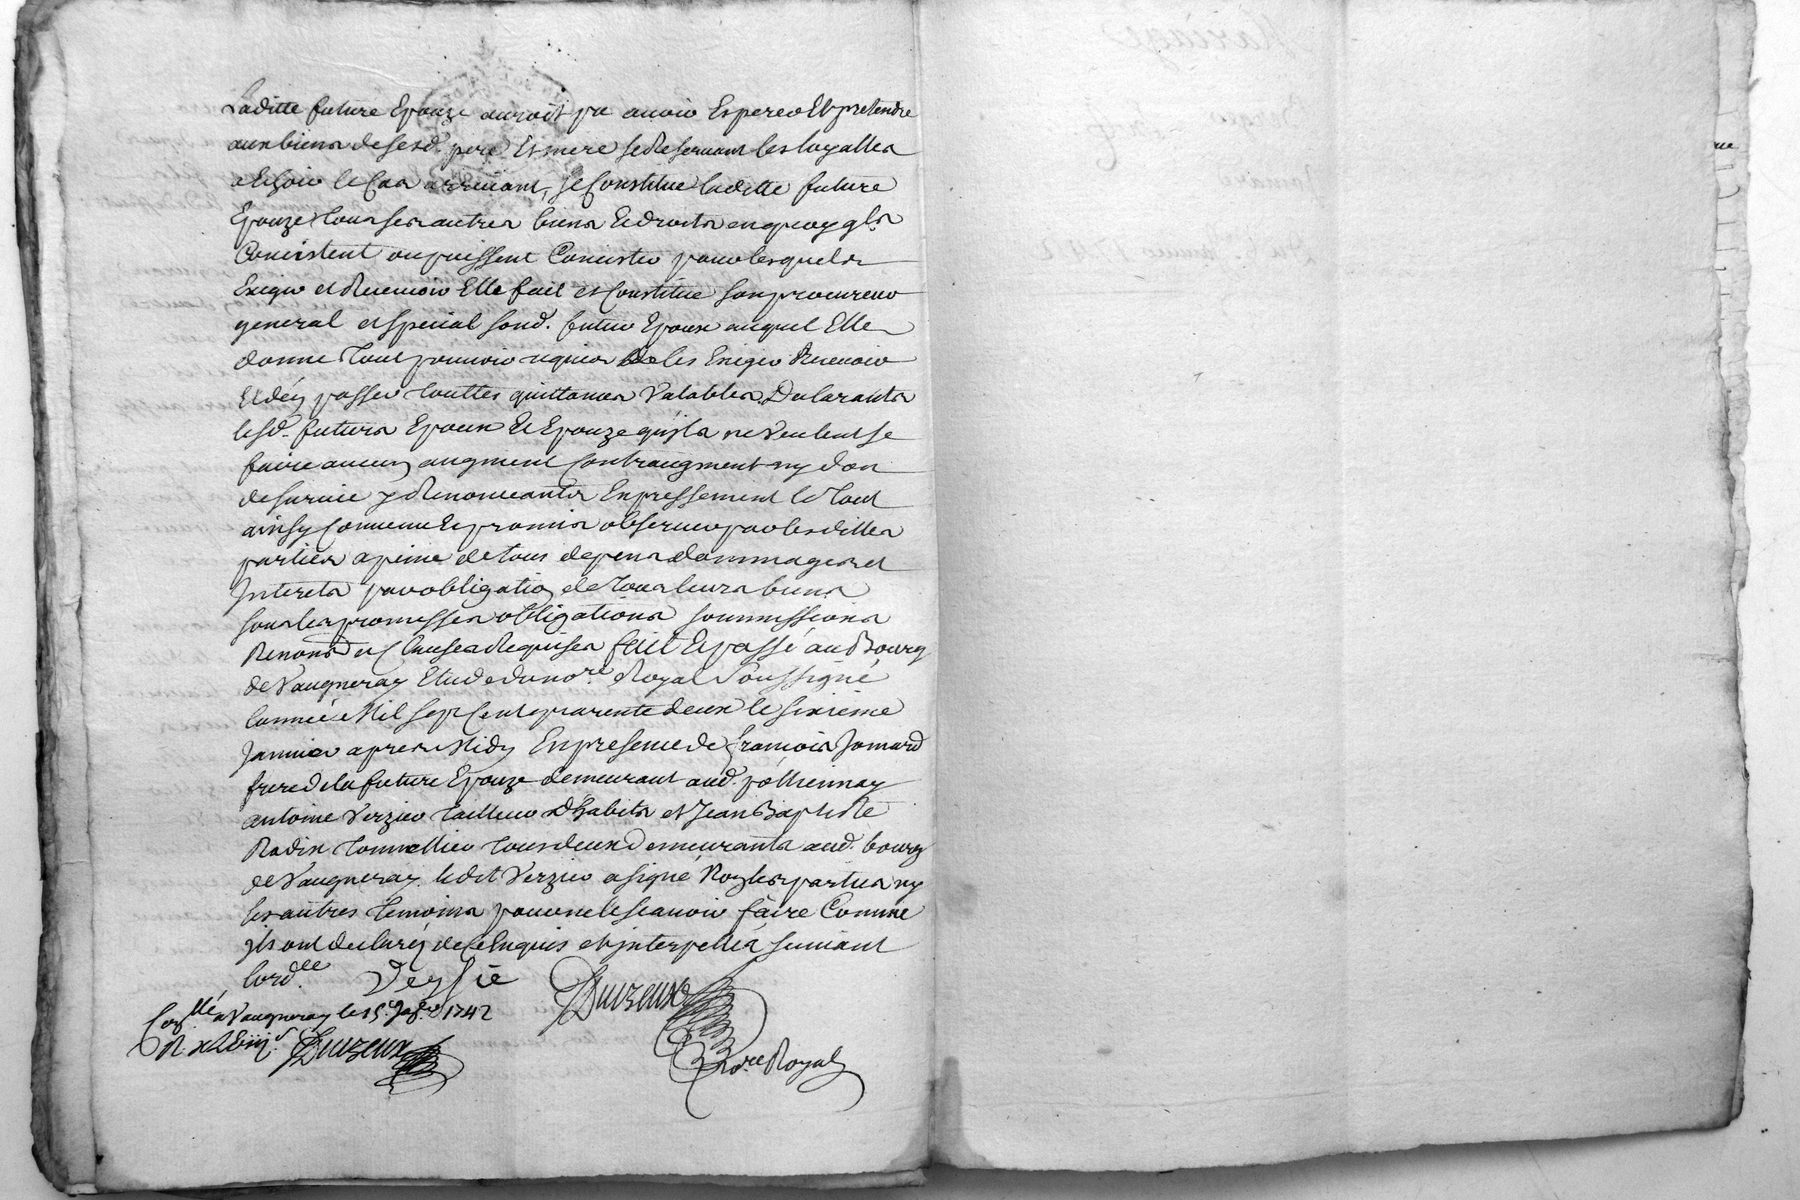 Laditte future Epouze auroit pu auoir Esperer Et pretendre
aux biens de sesd. pere Et mere se Reseruant les loyalles
echoir le Cas arriuant, se Constitue laditte future
Epouze tous ses autres biens Et droits en quoy qls
Concistent ou puissent Concister pour lesquels
Exiger et Receuoir Elle fait et Constitue son procureur
general et special sond. futur Epoux auquel Elle
donne tout pouuoir requis de les Exiger Receuoir
Et dén passer touttes quittances Valables, Declarants
lesd. futurs Epoux Et Epouze qu'ils ne Veulent se
faire aucun augment Contraugment ny don
de suruie y Renonceants Expressement le tout
ainsy Conuenu Et promis obseruer par lesdittes
parties a peine de tous depens dommages et
Interets par obligation de tous leurs biens
sous les promesses obligations soumissions
Renons et Clauses Requises fait Et passé au Bourg
de Vaugneray Etude du nore Royal Soussigné
l'année Mil sept Cent quarente deux le sixieme
Januier apres Midy En presence de françois Jomard
frere de la future Epouze demeurant aud. pòlliennay
antoine Verzier tailleur d'habits et Jean Baptiste
Radix tonnellier tous deux Demeurants aud. bourg
de Vaugneray. ledit Verzier a signé Non les parties ny
les autres temoins pour ne le scauoir faire Comme
ils ont declaréz de Ce Enquis et interpellés suiuant
lord.ce
Duizeux
Con.llé a Vaugneray le 15e Jaer 1742
Duizeux
No.re Royal
Mariage